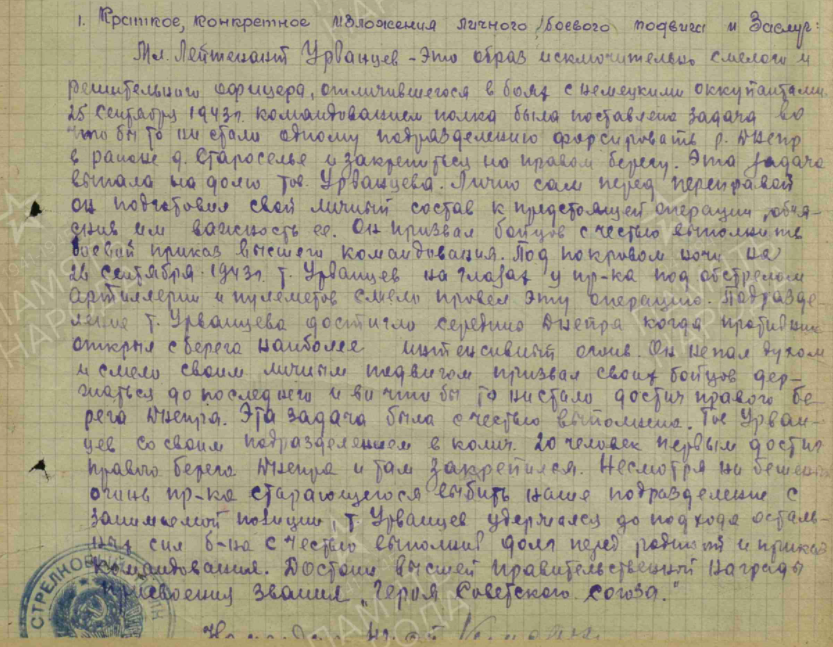 1. Краткое, конкретное изложения личного боевого подвига и Заслуг:
Мл. Лейтенант Урванцев – Это образ исключительно смелого и
решительного офицера, отличившегося в боях с немецкими оккупантами.
25 Сентября 1943г. командованием полка была поставлено задача во
что бы то ни стало одному подразделению форсировать р. Днепр
в районе д. Староселье и закрепиться на правом берегу. Эта задача
выпала на долю тов. Урванцева. Лично сам перед переправой
он подготовил свой личный состав к предстоящей операции, объя-
снив им важность ее. Он призвал бойцов с честью выполнить
боевой приказ высшего командования. Под покровом ночи на
26 сентября 1943г. т. Урванцев на глазах у пр-ка под обстрелом
артиллерии и пулеметов смело провел эту операцию. Подразде-
ление т. Урванцева достигло середины Днепра когда противник
открыл с берега наиболее интенсивный огонь. Он не пал духом
и смело своим личным подвигом призвал своих бойцов дер-
жаться до последнего и во что бы то ни стало достич правого бе-
рега Днепра. Эта задача была с честью выполнена. Тов Урван-
цев со своим подразделением в колич. 20 человек первым достиг
правого берега Днепра и там закрепился. Несмотря на бешены
огонь пр-ка старающегося выбить наше подразделение с
занимаемой позиции т. Урванцев удержался до подхода осталь-
ных сил б-на с честью выполнив долг перед родиной и приказ
командования. Достоин высшей правительственной награды
присвоения звания „Героя Советского союза."
СТРЕЛКОВ
ПАМЯТЬ
НАРОДА